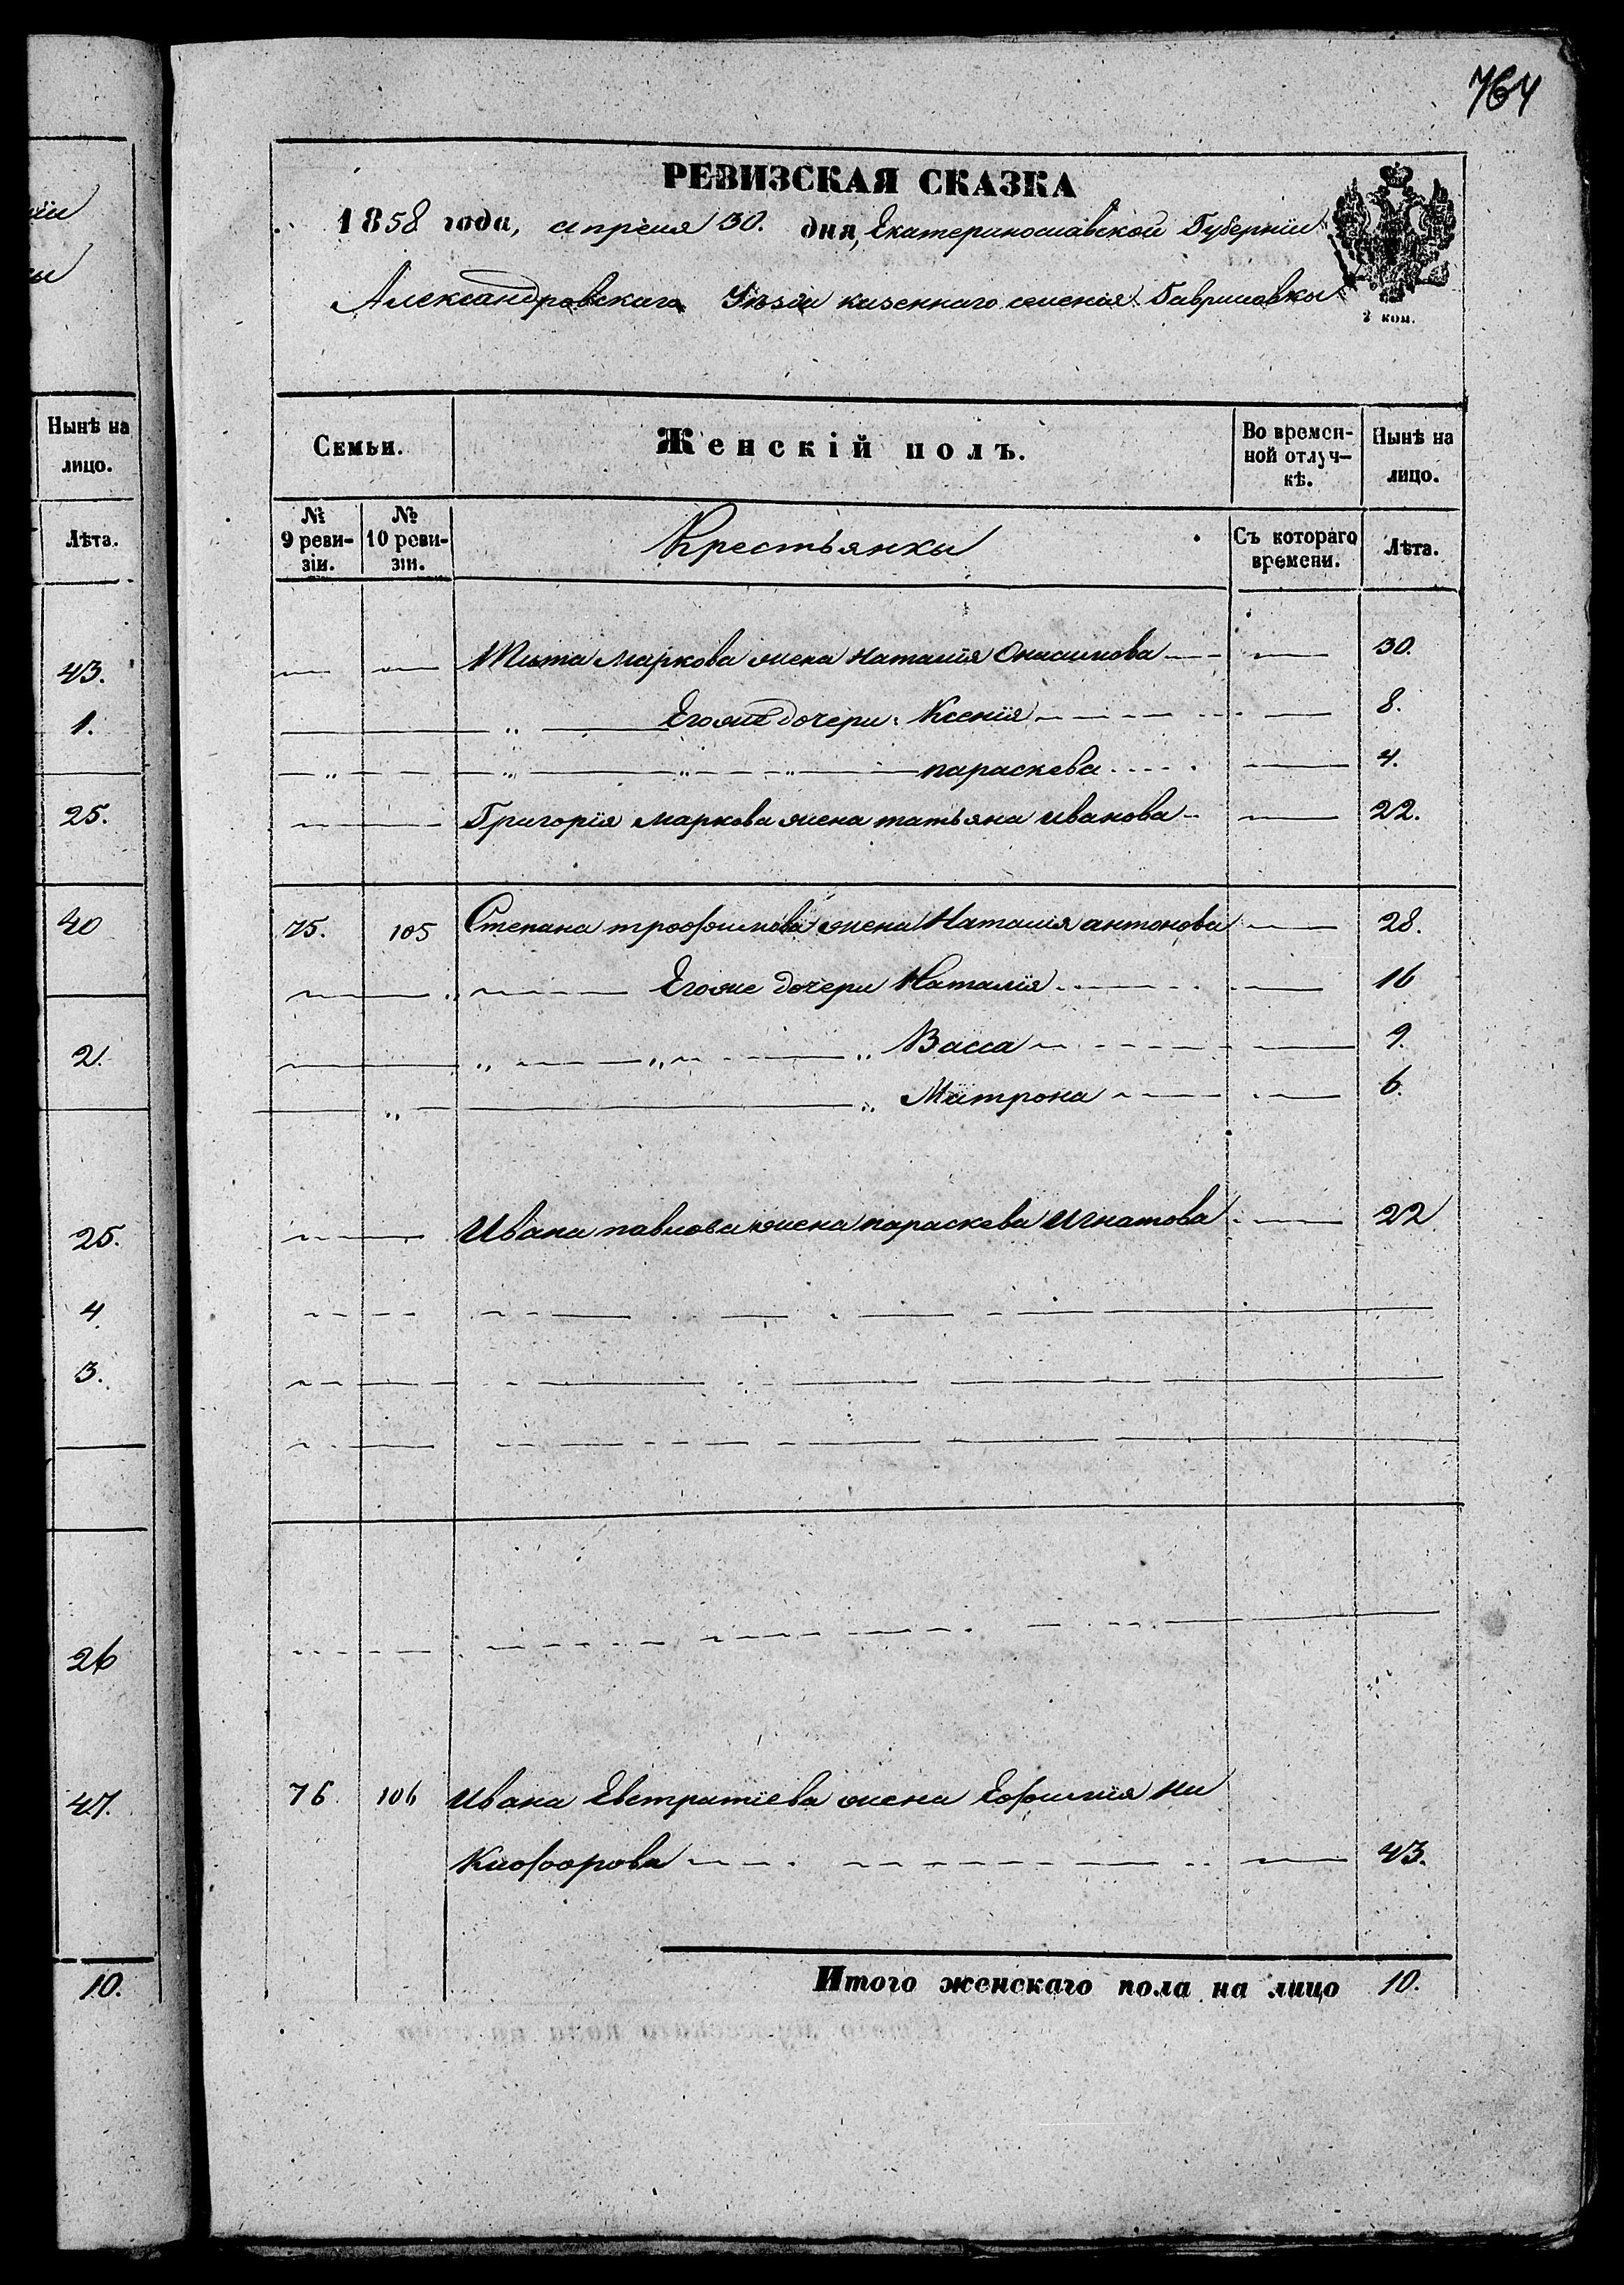 764
РЕВИЗСКАЯ СКАЗКА
1858 года, апреля 30. дня, Екатеринославской Губерніи
Александровскаго Уѣзда казеннаго селенія Гавриловки
2 коп.
Семьи. Женскій полъ. Во времен- Нынѣ на
ной отлуч- лицо.
кѣ.
№ № Крестьянки Съ котораго Лѣта.
9 реви- 10 реви- времени.
зіи. зіи.
Тита Маркова жена Наталія Онисимова 30.
Егоже дочери: Ксенія 8.
параскева 4.
Григорія Маркова жена татьяна иванова 22.
75. 105 Степана трофимова жена Наталия антонова 28.
Егоже дочери Наталія 16
Васса 9.
Матрона 6.
Ивана павлова жена параскева Игнатова 22
76. 106 Ивана Евстратіева жена Ефимия Ни
Кифорова 43.
Итого женскаго пола на лицо 10.
Нынѣ на
лицо.
Лѣта.
43.
1.
25.
40
2.
25.
4
3.
26
47.
10.